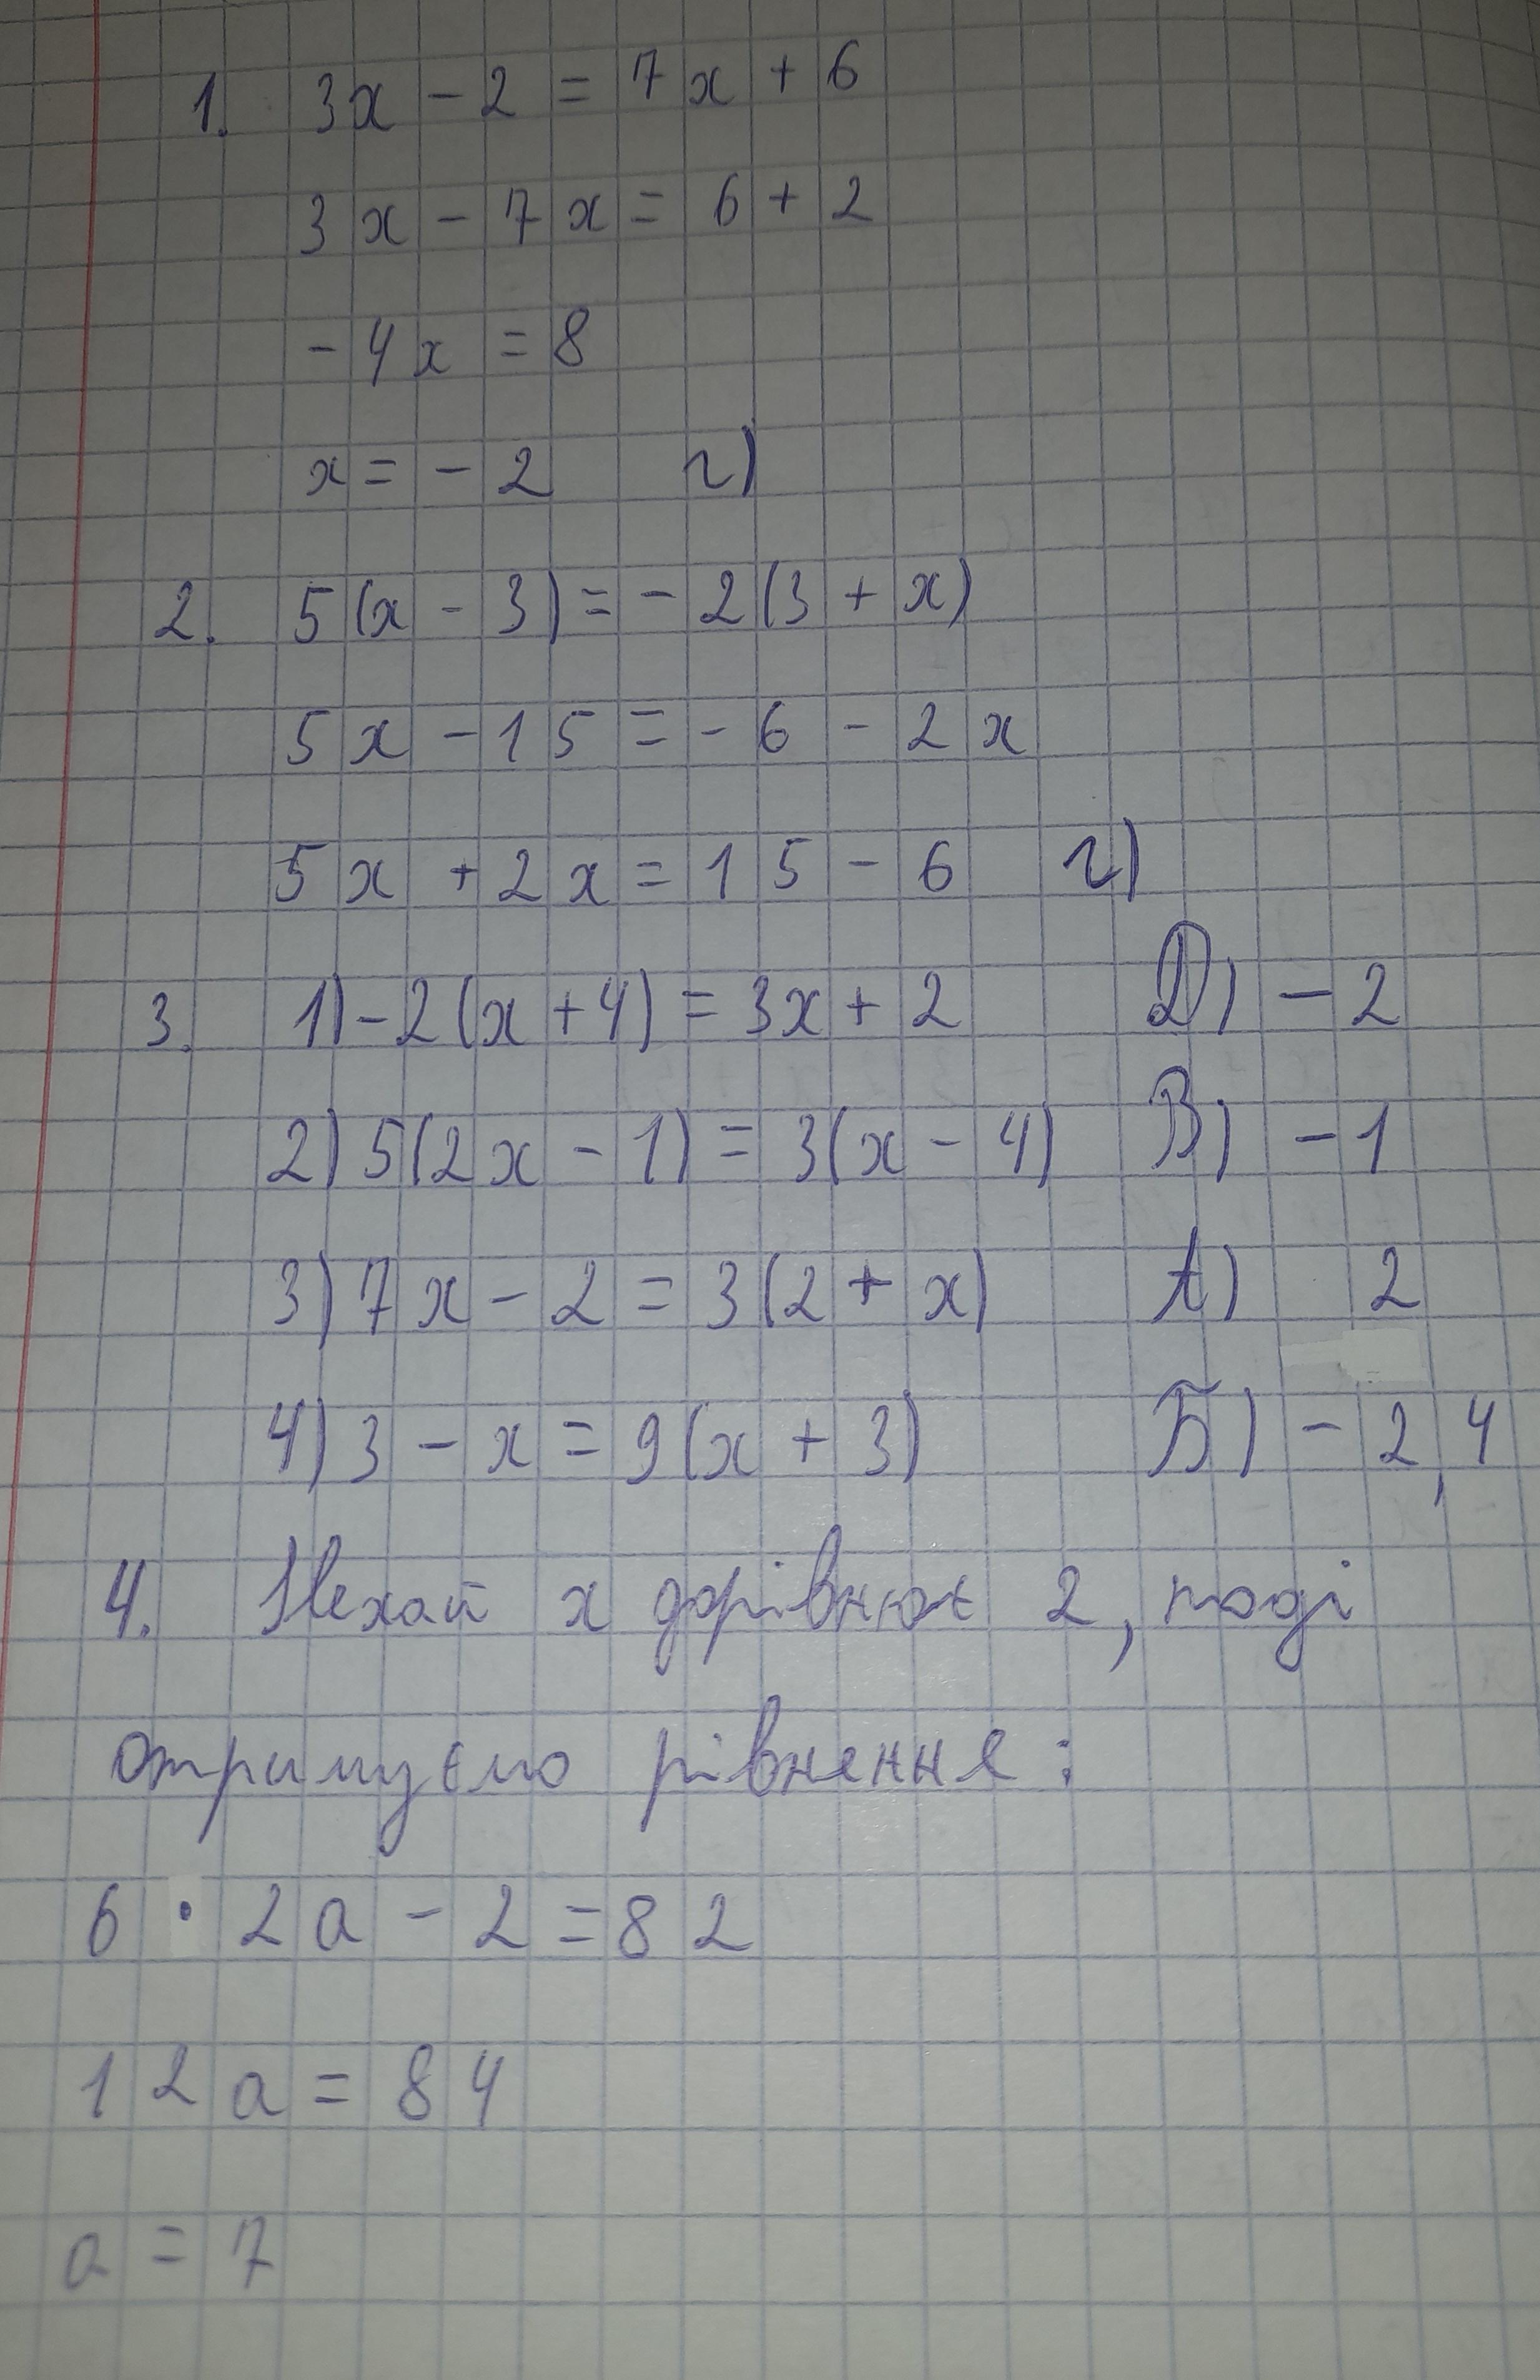 1. 3x - 2 = 7x + 6
3x - 7x = 6 + 2
- 4x = 8
x = - 2 г)
2. 5(x - 3) = - 2(3 + x)
5x - 15 = - 6 - 2x
5x + 2x = 15 - 6 г)
3. 1) -2(x + 4) = 3x + 2 Д) - 2
2) 5(2x - 1) = 3(x - 4) В) - 1
3) 7x - 2 = 3(2 + x) А) 2
4) 3 - x = 9(x + 3) Б) - 2,4
4. Нехай x дорівнює 2, тоді
отримуємо рівняння :
6 · 2a - 2 = 82
12a = 84
a = 7